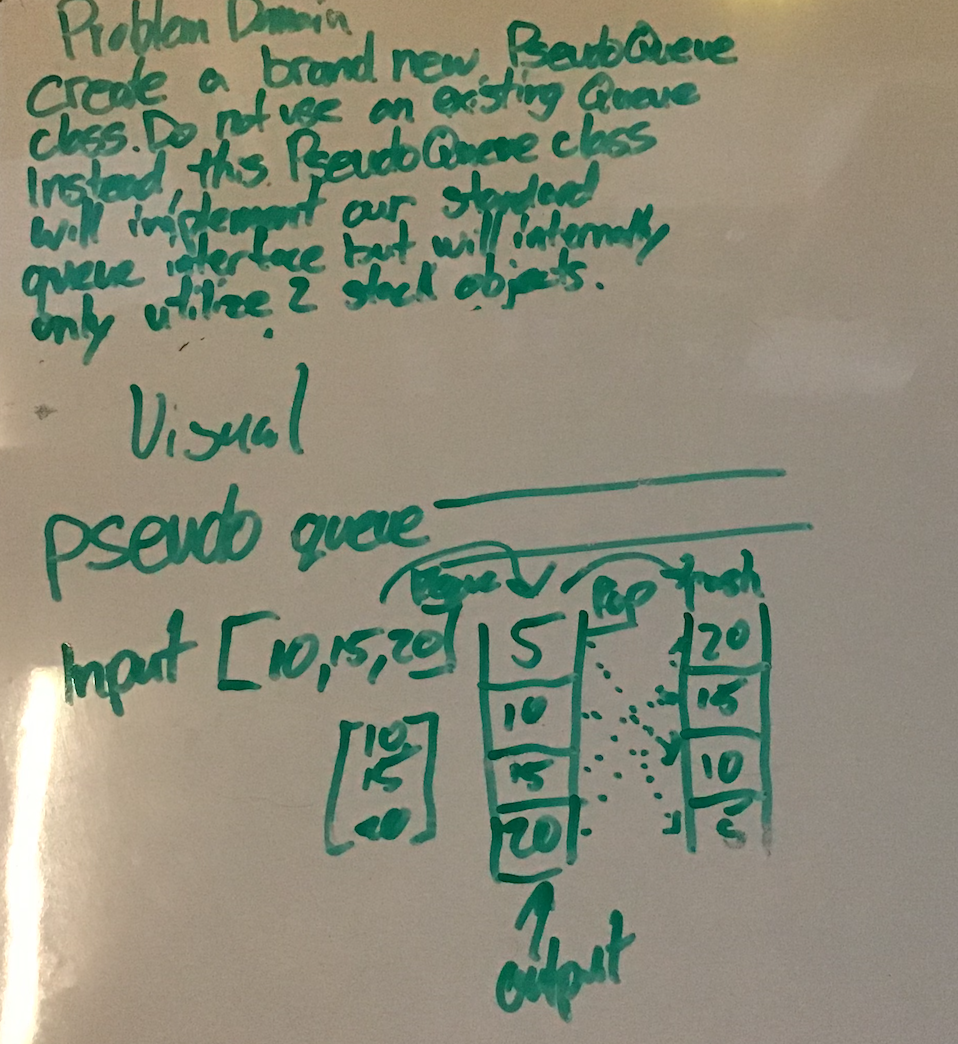 Problem Domain
Create a brand new PseudoQueue
class. Do not use an existing Queue
Instead, this PseudoQueue class
will implement our standard
queue interface but will internally
only utilize 2 stack objects.
Visual
pseudo queue
Pop Push
Input [10,15,20]
5
10
15
20
20
15
10
5
10
15
20
output